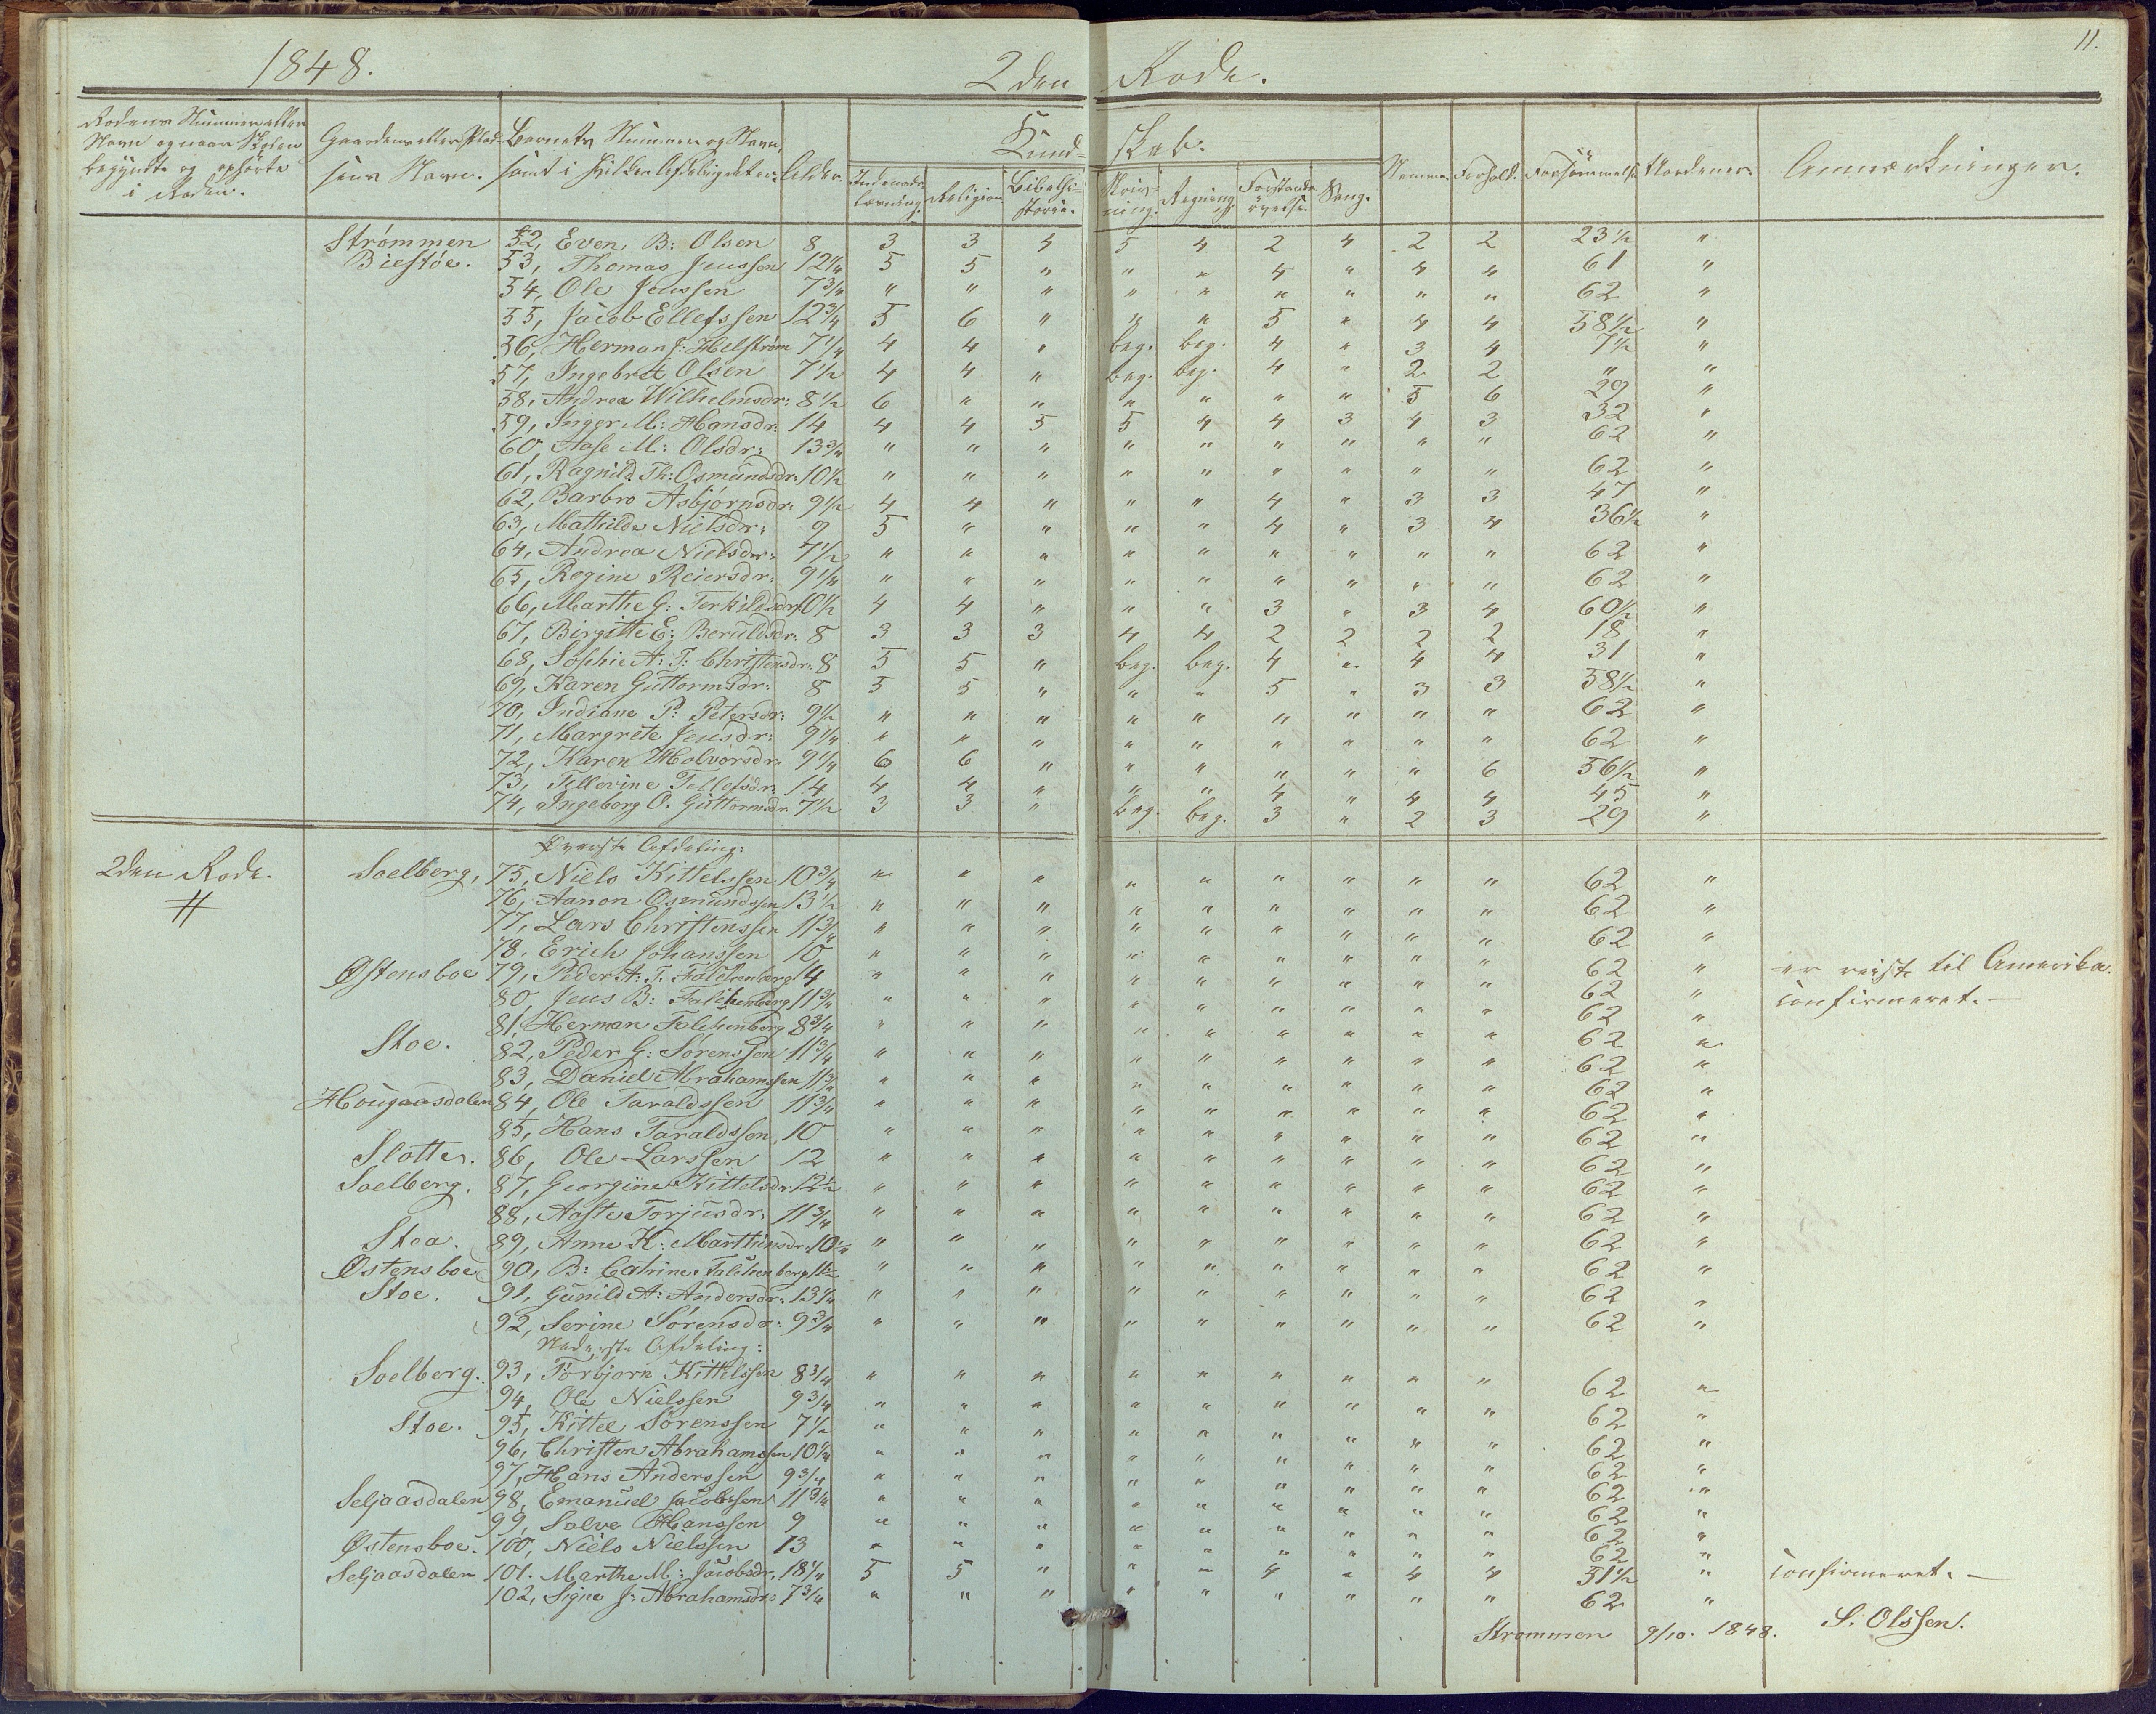 11.
1848. 2den Rode.
Rodens Nummer eller Navn og naar Skolen begyndte og ophørte i Roden. Gaardens eller Pladsens Navn. Barnets Nummer og Navn, samt i hvilken Afdeling det er. Alder. Kundskab. Nemme. Forhold. Forsømmelse. Anmærkninger.
Indenadslæsning. Religion. Bibelhistorie. Skrivning. Regning. Forstandsøvelse. Sang.
Strømmen 52, Even B: Olsen 8 3 3 4 5 4 2 4 2 2 23 1/2 "
Biestøe. 53, Thomas Jenssen 12 1/4 5 5 " " " 4 " 4 4 61 "
54, Ole Jenssen 7 3/4 " " " " " " " " " 62 "
55, Jacob Ellefssen 12 3/4 5 6 " " " 5 " 4 4 58 1/2 "
56, Herman J: Helstrøm 7 1/4 4 4 " beg. beg. 4 " 3 4 7 1/2 "
57, Ingebret Olsen 7 1/2 4 4 " beg. beg. 4 " 2 2 " "
58, Andrea Wilhelmsdr: 8 1/2 6 " " " " " " 5 6 29 "
59, Inger M: Hansdr: 14 4 4 5 5 4 4 3 4 3 32 "
60, Aase M: Olsdr: 13 3/4 " " " " " " " " " 62 "
61, Ragnild Th: Osmundsdr: 10 1/2 " " " " " " " " " 62 "
62, Barbro Asbjørnsdr: 9 1/2 4 4 " " " 4 " 3 3 47 "
63, Mathilde Nielsdr: 9 5 " " " " 4 " 3 4 36 1/2 "
64, Andrea Nielsdr: 7 1/2 " " " " " " " " " 62 "
65, Regine Reiersdr: 9 1/4 " " " " " " " " " 62 "
66, Marthe G: Terkildsdr: 10 1/2 4 4 " " " 3 " 3 4 60 1/2 "
67, Birgitte E: Beruldsdr: 8 3 3 3 4 4 2 2 2 2 18 "
68, Sophie A: T: Christensdr: 8 5 5 " beg. beg. 4 " 4 4 31 "
69, Karen Guttormsdr: 8 5 5 " " " 5 " 3 3 58 1/2 "
70, Indiane P: Petersdr: 9 1/2 " " " " " " " " " 62 "
71, Margrete Jensdr: 9 1/4 " " " " " " " " " 62 "
72, Karen Halvorsdr: 9 1/4 6 6 " " " " " " 6 56 1/2 "
73, Tellevine Tellefsdr: 14 4 4 " " " 4 " 4 4 45 "
74, Ingeborg O. Guttormsdr 7 1/2 3 3 " beg. beg. 3 " 2 3 29 "
Øverste Afdeling:
2den Rode. Soelberg, 75, Niels Kittelssen 10 3/4 " " " " " " " " " 62 "
76, Aanon Osmundssen 13 1/2 " " " " " " " " " 62 "
77, Lars Christenssen 11 3/4 " " " " " " " " " 62 "
78, Erich Johanssen 10 " " " " " " " " " 62 " er reist til Amerika.
Østensboe 79, Peder A: T. Falchenberg 14 " " " " " " " " " 62 " Confirmeret. —
80, Jens B: Falchenberg 11 3/4 " " " " " " " " " 62 "
81, Herman Falchenberg 8 3/4 " " " " " " " " " 62 "
Stoe. 82, Peder G: Sørenssen 11 3/4 " " " " " " " " " 62 "
83, Daniel Abrahamssen 11 3/4 " " " " " " " " " 62 "
Hougaasdalen 84, Ole Taraldssen 11 3/4 " " " " " " " " " 62 "
85, Hans Taraldssen 10 " " " " " " " " " 62 "
Slotte. 86, Ole Larssen 12 " " " " " " " " " 62 "
Soelberg. 87, Georgine Kittelsdr 12 1/2 " " " " " " " " " 62 "
88, Aaste Torjusdr: 11 3/4 " " " " " " " " " 62 "
Stoa. 89, Anne K: Marthinsdr: 10 1/4 " " " " " " " " " 62 "
Østensboe 90, B: Catrine Falchenberg " " " " " " " " " 62 "
Stoe. 91, Gunild A: Andersdr: 13 1/4 " " " " " " " " " 62 "
92, Serine Sørensdr: 9 3/4 " " " " " " " " " 62 "
Nederste Afdeling:
Soelberg. 93, Torbjørn Kittelssen 8 3/4 " " " " " " " " " 62 "
94, Ole Nielssen 9 3/4 " " " " " " " " " 62 "
Stoe. 95, Kittel Sørenssen 7 1/2 " " " " " " " " " 62 "
96, Christen Abrahamssen 10 1/4 " " " " " " " " " 62 "
97, Hans Anderssen 9 3/4 " " " " " " " " " 62 "
Seljaasdalen 98, Emanuel Jacobssen 11 3/4 " " " " " " " " " 62 "
99, Salve Hanssen 9 " " " " " " " " " 62 "
Østensboe. 100, Niels Nielssen 13 " " " " " " " " " 62 "
Seljaasdalen 101. Marthe M: Jacobsdr. 18 1/4 5 5 " " " 4 " 4 4 51 1/2 " Confirmeret. —
102, Signe J: Abrahamsdr: 7 3/4 " " " " " " " " " 62 "
Strømmen 9/10. 1848. S: Olssen.